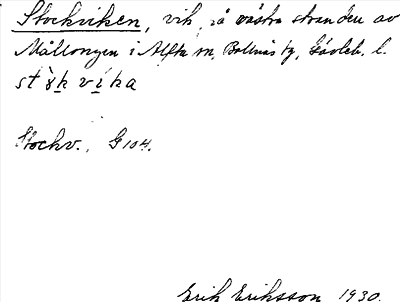 Stockviken, vik, på västra stranden av
Mållongen i Alfta sn, Bollnäs tg, Gävleb. l.
Stockv., G 104.
Erik Eriksson 1930.